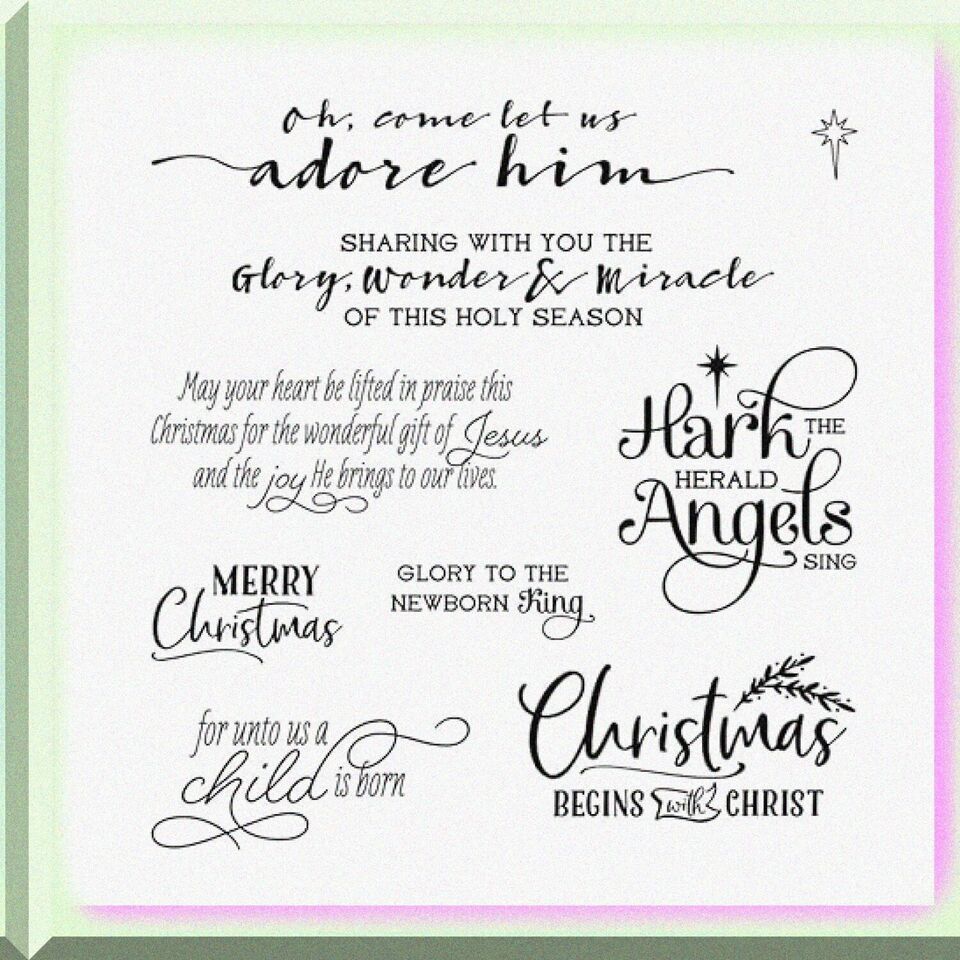 Oh, come let us
adore him
SHARING WITH YOU THE
Glory, Wonder & Miracle
OF THIS HOLY SEASON
May your heart be lifted in praise this
Christmas for the wonderful gift of Jesus
and the joy He brings to our lives.
Hark THE
HERALD
Angels
SING
MERRY
Christmas
GLORY TO THE
NEWBORN King
for unto us a
child is born
Christmas
BEGINS with CHRIST